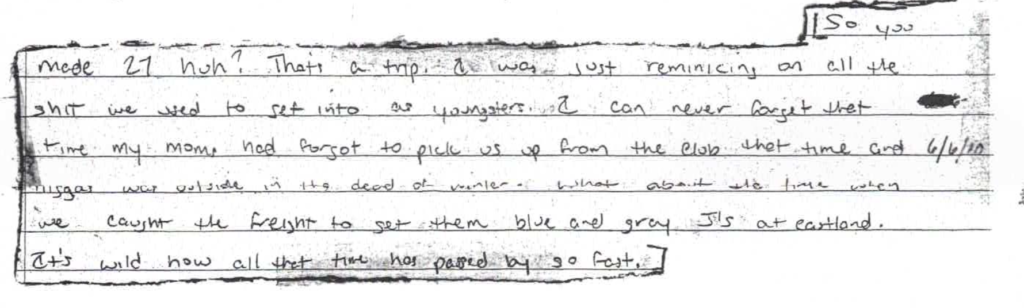 [So you
made 27 huh? Thats a trip. I was just reminicing on all the
shit we used to get into as youngsters. I can never forget that
time my moms had forgot to pick us up from the club that time and 6/6/10
niggas was outside in the dead of winter. What about the time when
we caught the freight to get them blue and gray J's at eastland.
It's wild how all that time has passed by so fast.]